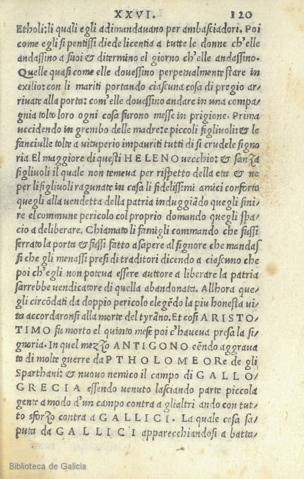 XXVI. 120
Etholi: li quali egli adimandavano per ambasciadori. Poi
come egli si pentissi diede licentia a tutte le donne ch'elle
andassino a suoi & ditermino el giorno ch'elle andassino.
Quelle quasi come elle dovessino perpetualmente stare in
exilio: con li mariti portando ciascuna cosa di pregio ar-
rivate alla porta: com'elle dovessino andare in una compa-
gnia tolto loro ogni cosa furono messe in prigione. Prima
uccidendo in grembo delle madre: piccoli figliuoli: & le
fanciulle tolte a vituperio impauriti tutti di si crudele signo
ria El maggiore di questi HELENO vecchio: & sanza
figliuoli il quale non temeva per rispetto della eta & ne
per li figliuoli ragunate in casa li fidelissimi amici conforto
quegli alla vendetta della patria indugiãdo quegli fini-
re el commune pericolo col proprio domando quegli spa-
cio a deliberare. Chiamato li famigli commando che fussi
serrato la porta & fussi fatto a sapere al signore che mandas
si che gli menassi presi di traditori dicendo a ciascuno che
poi ch'egli non poteva essere auttore a liberare la patria
sarrebbe vendicatore di quella abandonata. Allhora que-
gli circõdati da doppio pericolo elegẽdo la piu honesta vi-
ta accordaronsi alla morte del tyrãno. Et cosi ARISTO-
TIMO fu morto el quinto mese poi c'haveva presa la si-
gnoria. In quel mezzo ANTIGONO eẽndo aggrava
to di molte guerre da PTHOLOMEO Re de gli
Sparthani: & nuovo nemico il campo di GALLO-
GRECIA essendo venuto lasciando parte piccola
gente a modo d'un campo contra a gli altri ando con tut-
to sforzo contra a GALLICI. La quale cosa sa-
puta da GALLICI apparecchiandosi a batta-
Biblioteca de Galicia